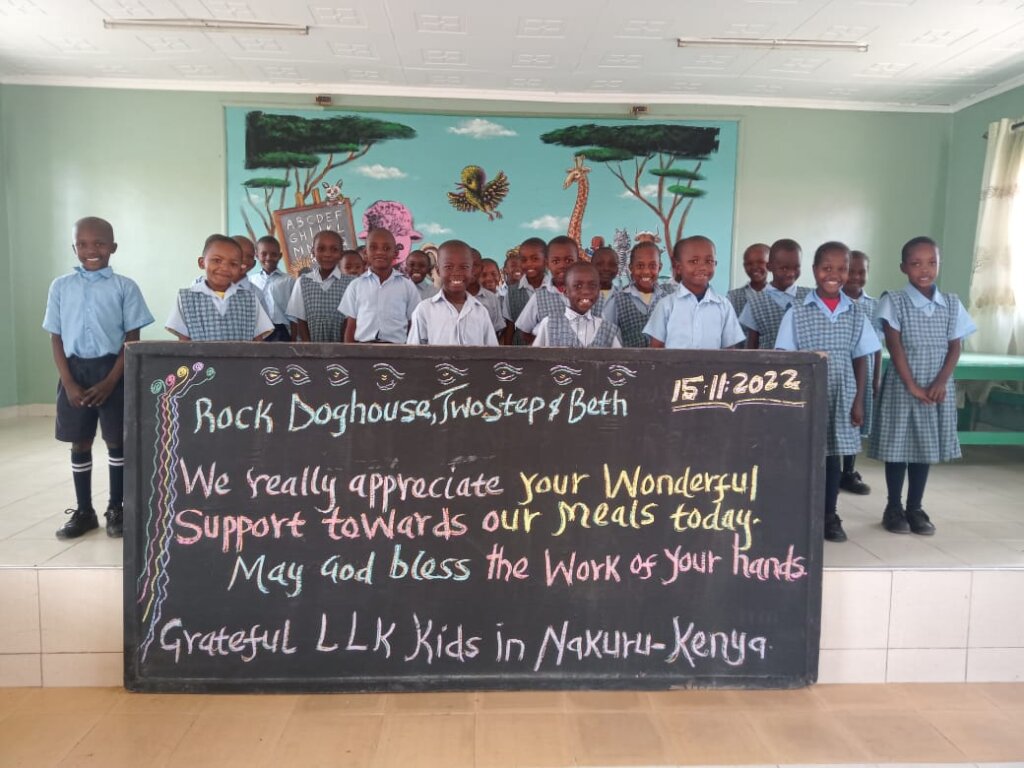 ABCDEF
15:11:2022
Rock Doghouse, TwoStep & Beth
We really appreciate your Wonderful
Support towards our Meals today.
May God bless the Work of your hands.
Grateful LLK Kids in Nakuru-Kenya.